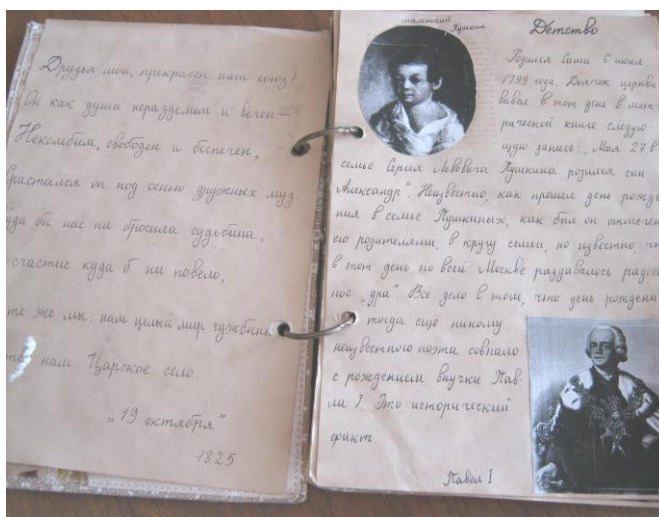 Друзья мои, прекрасен наш союз!
Он как душа неразделим и вечен—
Неколебим, свободен и беспечен,
Срастался он под сенью дружных муз.
Куда бы нас ни бросила судьбина,
счастие куда б ни повело,
те же мы: нам целый мир чужбина
нам Царское село.
„19 октября"
1825
маленький
Пушкин
Детство
Родился Саша 6 июня
1799 года. Дьячок церкви
вывел в тот день в мет-
рической книге следую-
щую запись: „Мая 27 в
семье Сергея Львовича Пушкина родился сын
Александр". Неизвестно, как прошел день рожде
ния в семье Пушкиных, как был он отмечен
его родителями, в кругу семьи, но известно, чт
в тот день по всей Москве раздавалось радос
ное „ура". Все дело в том, что день рождени
тогда ещё никому
неизвестного поэта совпало
с рождением внучки Пав-
ла I. Это исторический
факт.
Павел I